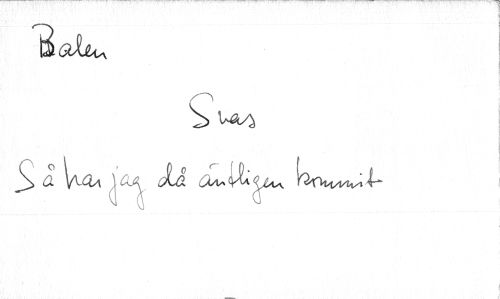 Balen
Svas
Så har jag då äntligen kommit